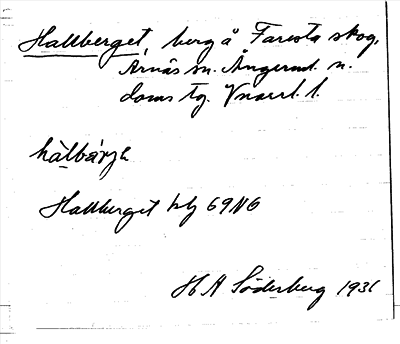 Hallberget, berg å Faresta skog,
Arnäs sn. Ångerml. n.
doms tg. Vnorrl. l.
hàlbárjǝ
Hallberget blg 69NO
H A Söderberg 1931